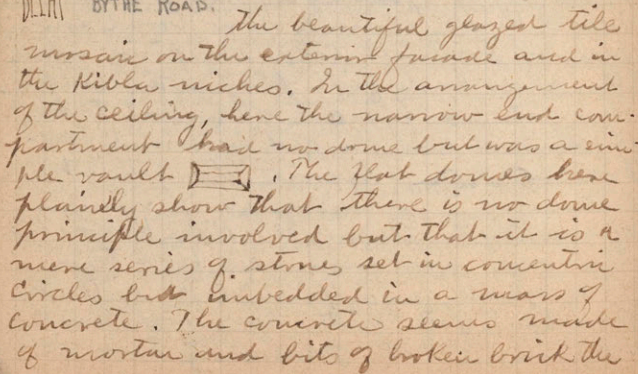 DELHI BY THE ROAD.
the beautiful glazed tile
mosaic on the exterior facade and in
the Kibla niches. In the arrangement
of the ceiling, here the narrow end com-
partment had no dome but was a sim-
ple vault . The flat domes here
plainly show that there is no dome
principle involved but that it is a
mere series of stones set in concentric
circles but imbedded in a mass of
concrete. The concrete seems made
of mortar and bits of broken brick the